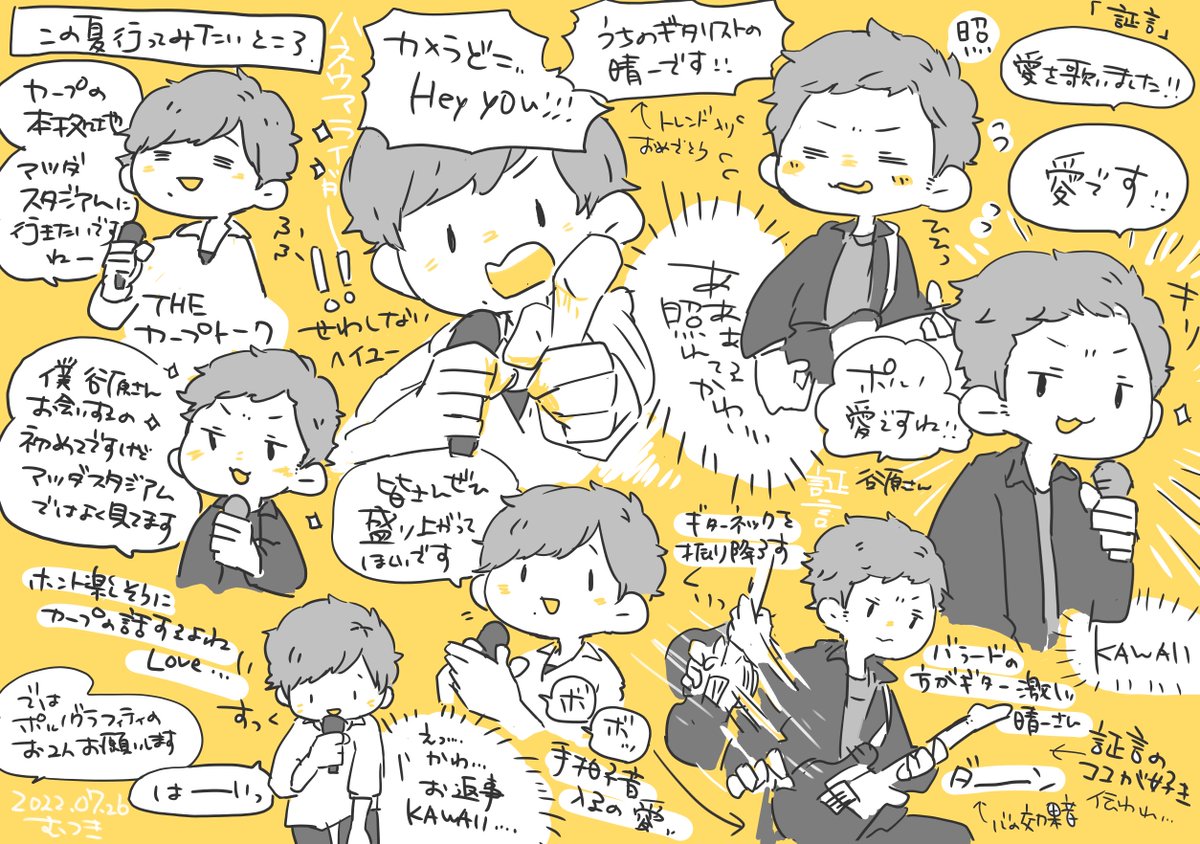 この夏行ってみたいところ
カープの
本拠地
マツダ
スタジアムに
行きたいです
ねー
THE
カープトーク
ハネウマライダー
ふ
ふ
!!
カメラどこ..
Hey you!!!
せわしない
ヘイユー
うちのギタリストの
晴一です!!
←トレンド入り
おめでとう
照
「証言」
愛を歌いました!!
愛です!!
キリッ
ああぁ
照れてる
かわ
ポルノ
愛ですね!!
谷原さん
僕谷原さん
お会いするの
初めてですけど
マツダスタジアム
ではよく見てます
皆さんぜひ
盛り上がって
ほしいです
証言
ギターネックを
振り降ろす
ホント楽しそうに
カープの話するよね
LOVE...
すっく
では
ポルノグラフィティの
お二人お願いします
はーいっ
えっ...
かわ...
お返事
KAWAII....
ボ
ボッ
手拍子音
入るの愛..
KAWAII
バラードの
方がギター激しい
晴一さん
←証言の
ココが好き
伝われ...
ダーン
←心の効果音
2022.07.26
むつき